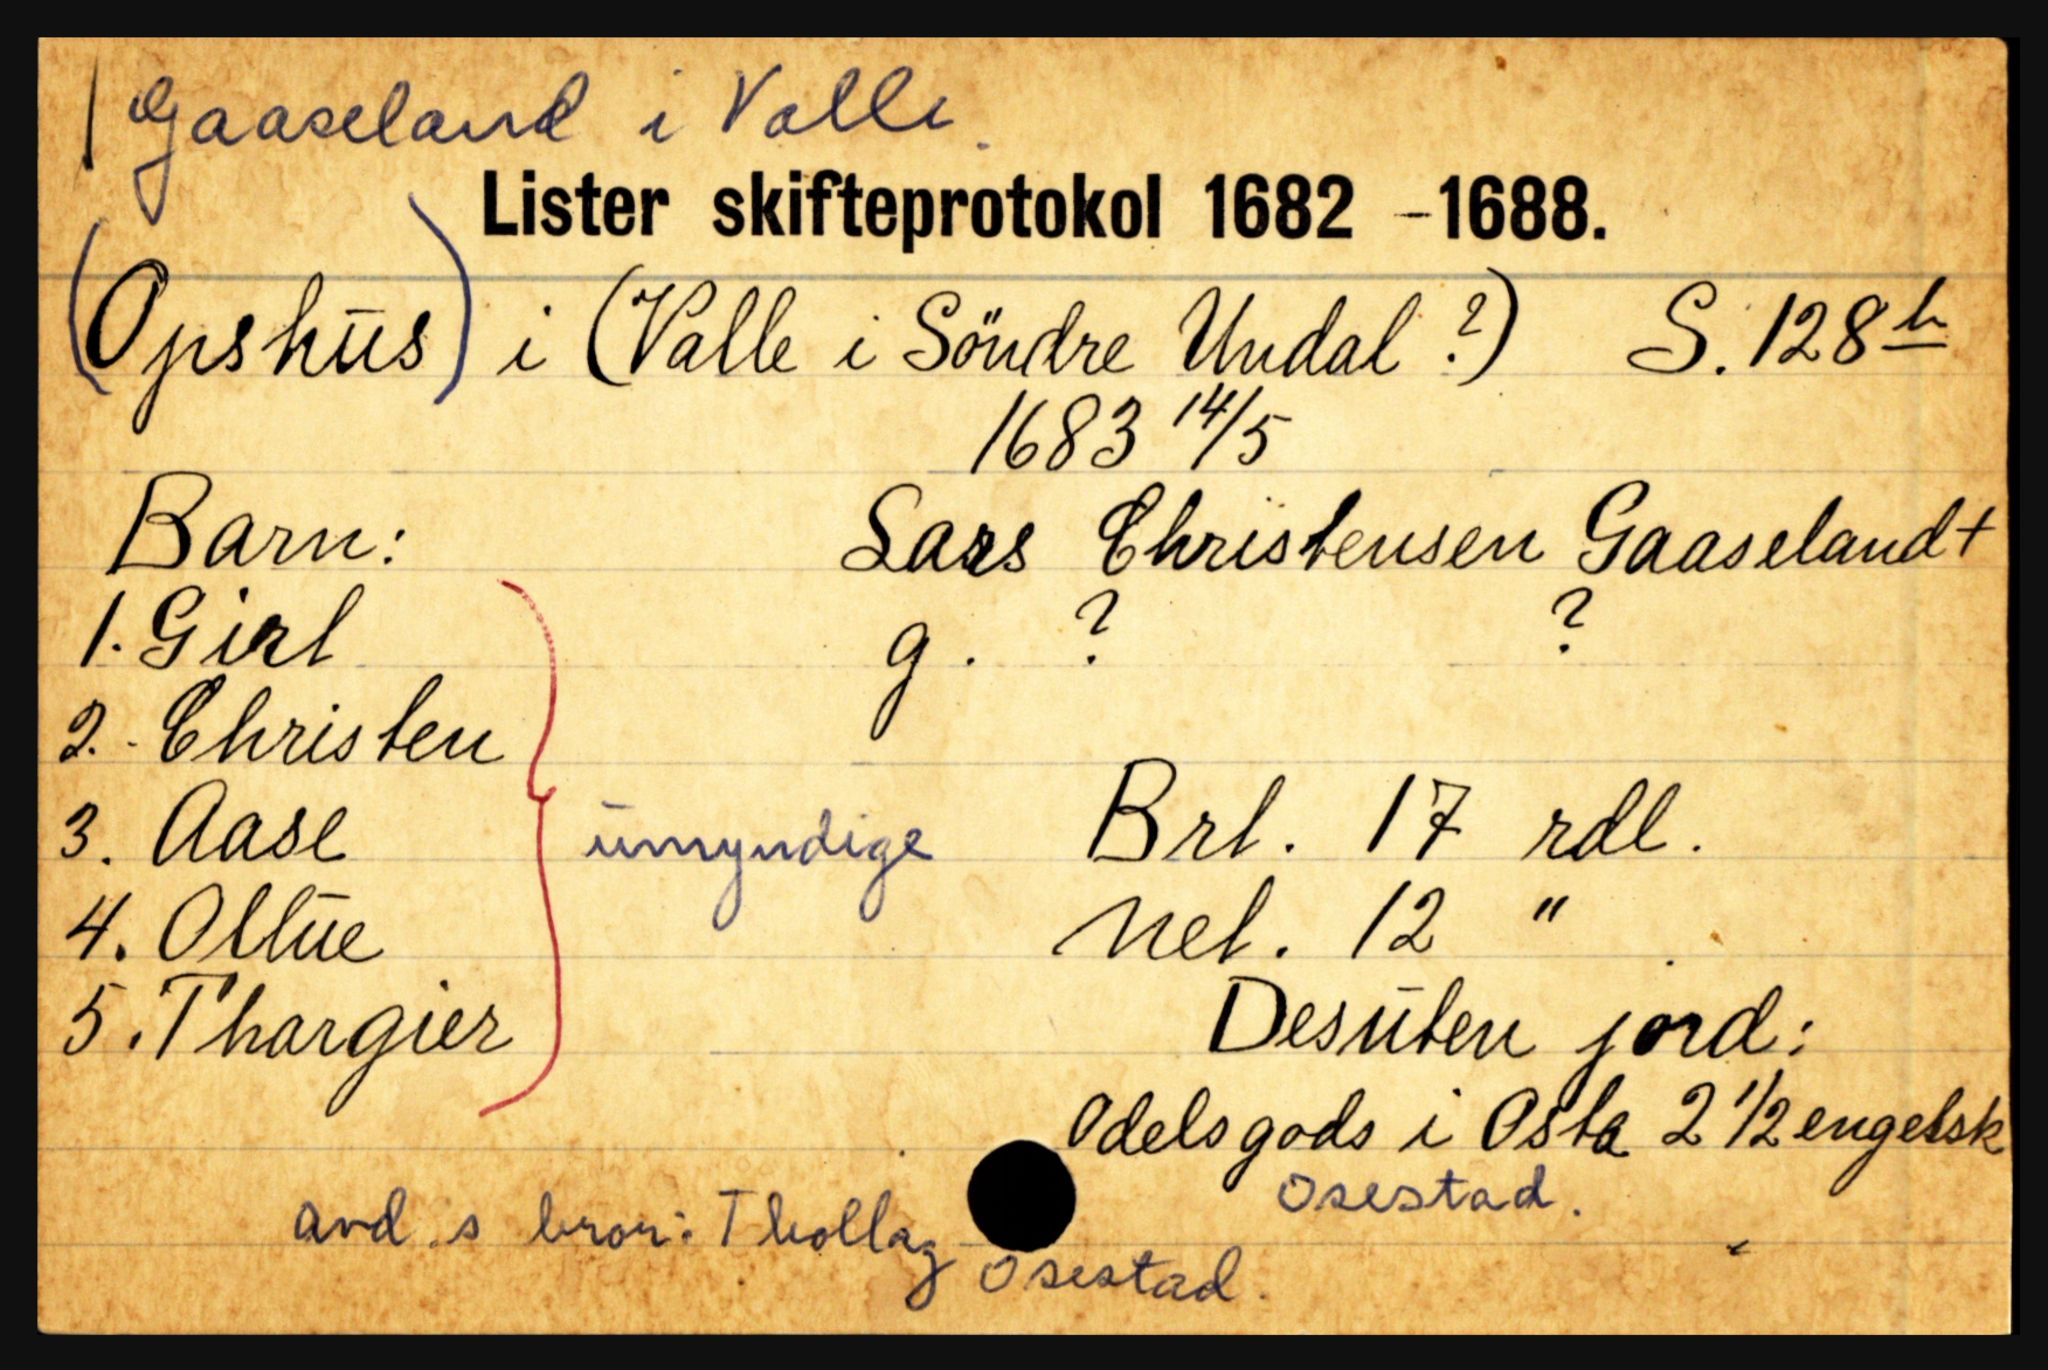 Gaaseland i Valle.
Lister skifteprotokol 1682 -1688.
(Opshus) i (Valle i Söndre Undal ?) S. 128 b
1683 14/5
Barn: Lars Christensen Gaaseland +
1. Girl g. ? ?
2. Christen
3. Aase umyndige Brt. 17 rdl.
4. Ollue Net. 12 "
5. Thargier Desuten jord:
Odelsgods i Osta 2 1/2 engelsk
Osestad.
avd. s bror: Thollag
Osestad.